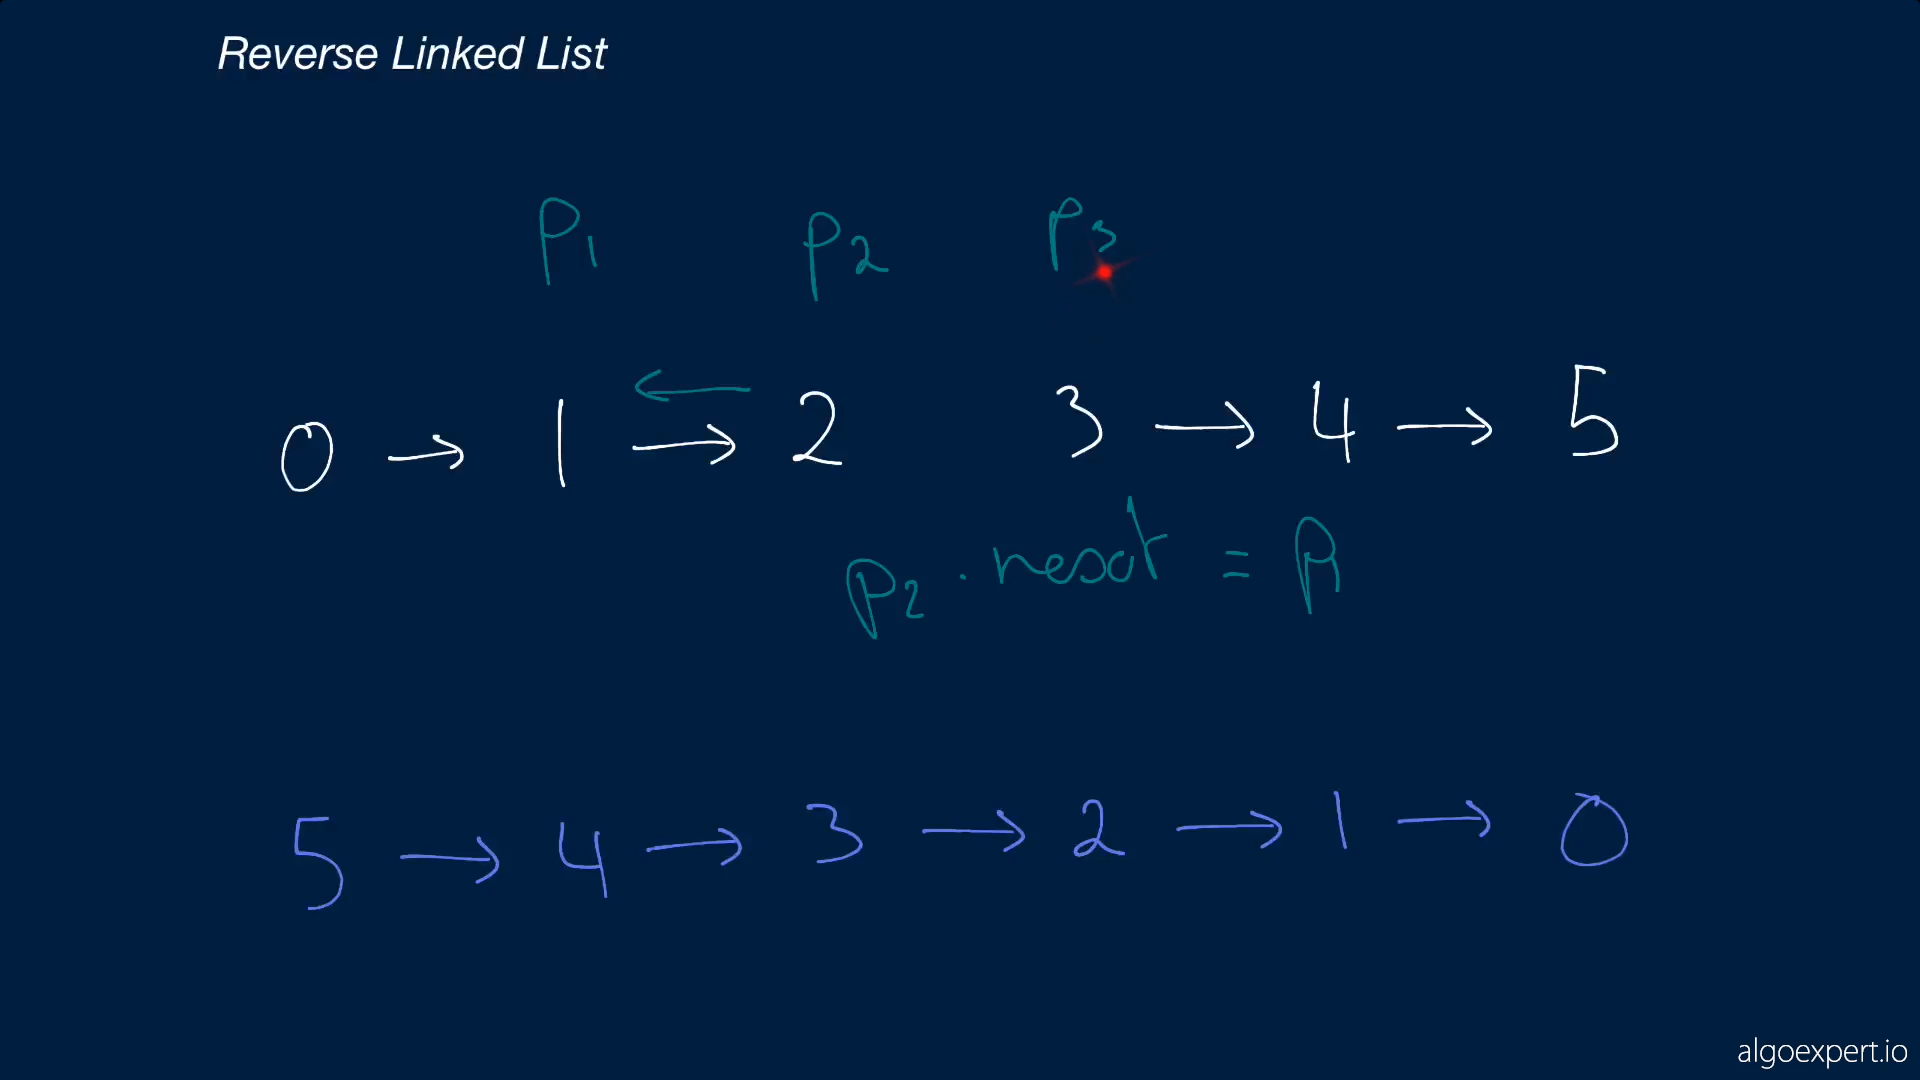 Reverse Linked List
P1 P2 P3
←
0 → 1 → 2 3 → 4 → 5
P2.next = P1
5 → 4 → 3 → 2 → 1 → 0
algoexpert.io